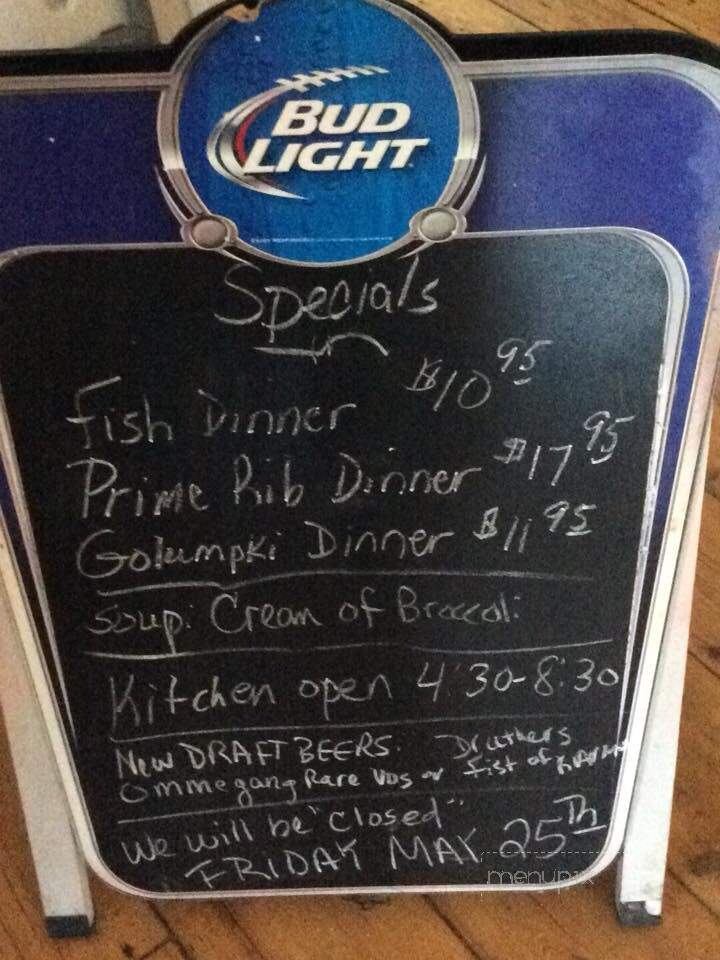 BUD
LIGHT
Specials
Fish Dinner $10 95
Prime Rib Dinner $17 95
Golumpki Dinner $11 95
Soup: Cream of Broccoli
Kitchen open 4:30-8:30
New DRAFT BEERS: Druthers
Ommegang Rare Vos or Fist of Karma
We will be "closed"
FRIDAY MAY 25Th
menupix